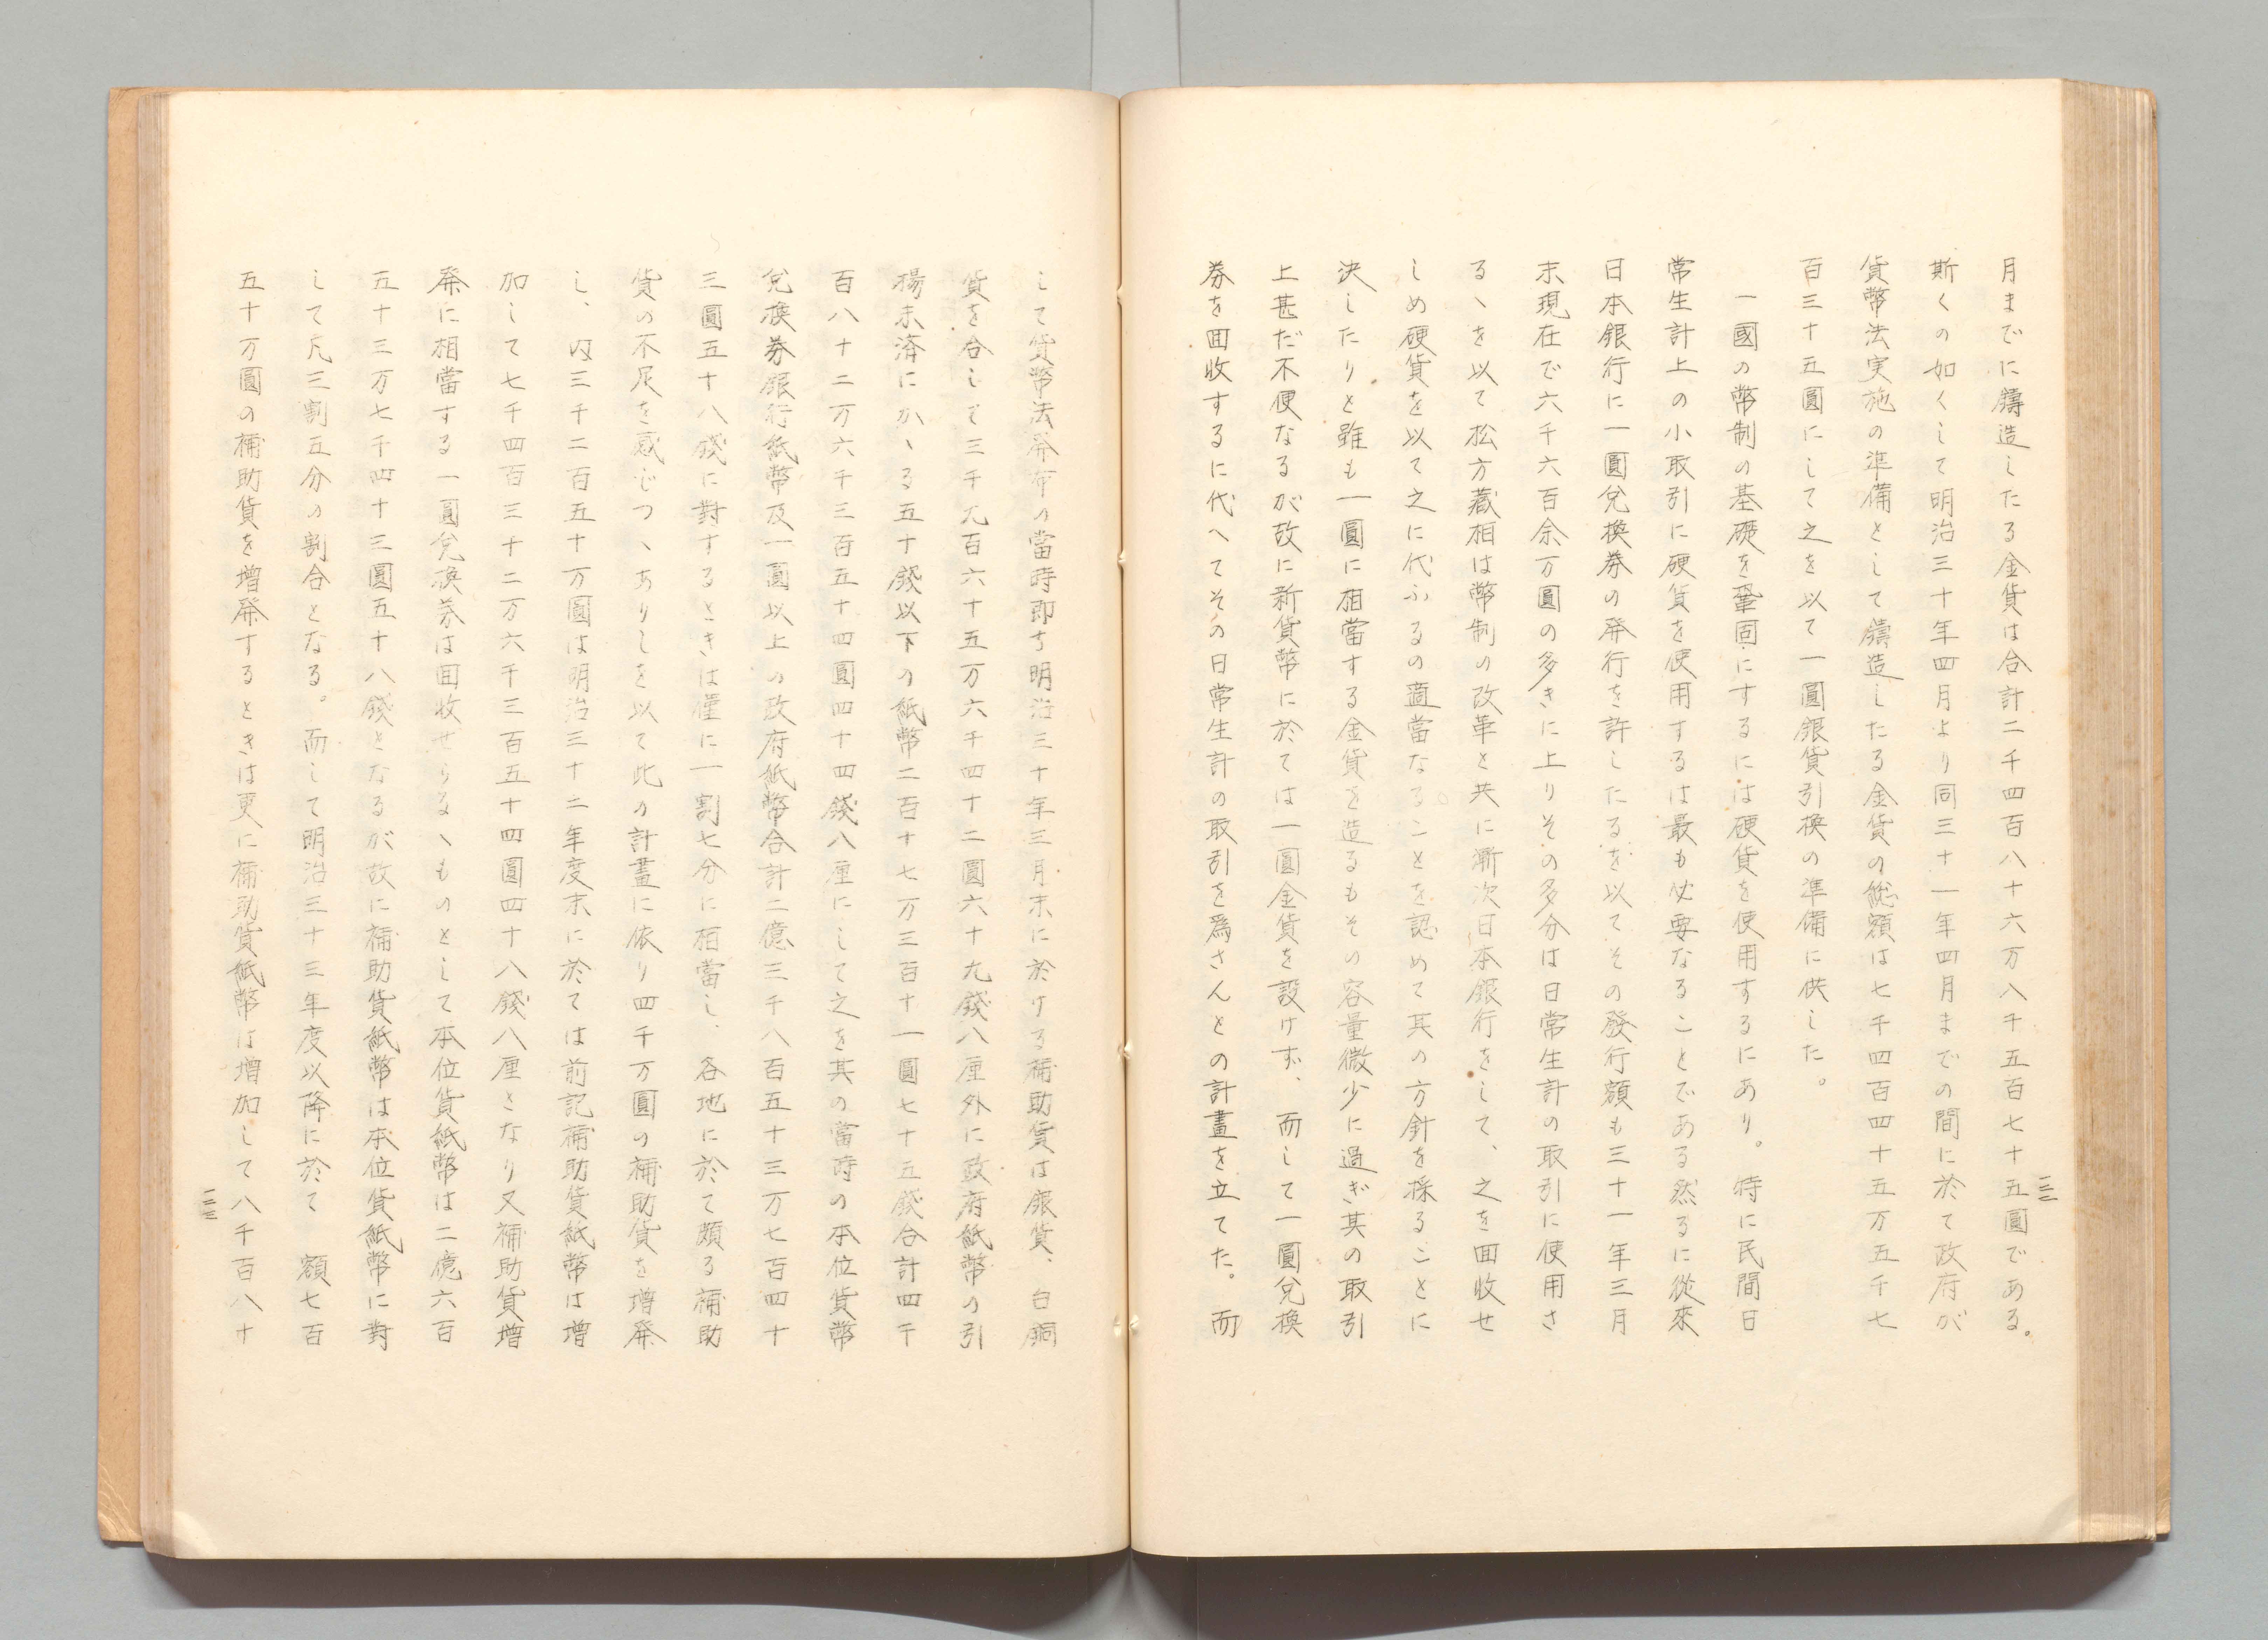 一三二
月までに鑄造したる金貨は合計二千四百八十六万八千五百七十五圓である。
斯くの如くして明治三十年四月より同三十一年四月までの間に於て政府が
貨幣法実施の準備として鑄造したる金貨の総額は七千四百四十五万五千七
百三十五圓にして之を以て一圓銀貨引換の準備に供した。
一國の幣制の基礎を鞏固にするには硬貨を使用するにあり。特に民間日
常生計上の小取引に硬貨を使用するは最も必要なることである然るに從來
日本銀行に一圓兌換券の発行を許したるを以てその發行額も三十一年三月
末現在で六千六百余万圓の多きに上りその多分は日常生計の取引に使用さ
るヽを以て松方蔵相は幣制の改革と共に漸次日本銀行をして、之を囬收せ
しめ硬貨を以て之に代ふるの適當なることを認めて其の方針を採ることに
決したりと雖も一圓に相當する金貨を造るもその容量微少に過ぎ其の取引
上甚だ不便なるが故に新貨幣に於ては一圓金貨を設けず、而して一圓兌換
券を囬收するに代へてその日常生計の取引を爲さんとの計畫を立てた。而
して貨幣法発布の當時即す明治三十年三月末に於ける補助貨は銀貨、白銅
貨を合して三千九百六十五万六千四十二圓六十九錢八厘外に政府紙幣の引
揚未済にかヽる五十錢以下の紙幣二百十七万三百十一圓七十五錢合計四千
百八十二万六千三百五十四圓四十四錢八厘にして之を其の當時の本位貨幣
兌換券銀行紙幣及一圓以上の政府紙幣合計二億三千八百五十三万七百四十
三圓五十八錢に對するときは僅に一割七分に相當し、各地に於て頗る補助
貨の不足を感じつヽありしを以て此の計畫に依り四千万圓の補助貨を增発
し、内三千二百五十万圓は明治三十二年度末に於ては前記補助貨紙幣は增
加して七千四百三十二万六千三百五十四圓四十八錢八厘となり又補助貨增
発に相當する一圓兌換券は囬收せらるヽものとして本位貨紙幣は二億六百
五十三万七千四十三圓五十八錢となるが故に補助貨紙幣は本位貨紙幣に對
して凡三割五分の割合となる。而して明治三十三年度以降に於て 額七百
五十万圓の補助貨を增発するときは更に補助貨紙幣は增加して八千百八十
一三三